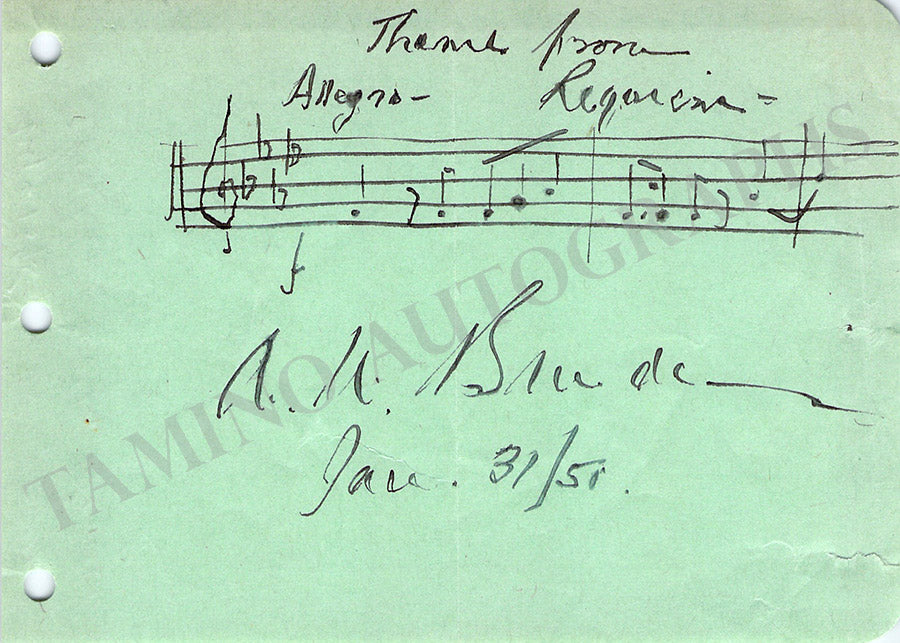 Theme from
Allegro - Requiem -
f
Jan. 31/51.
TAMINO AUTOGRAPHS